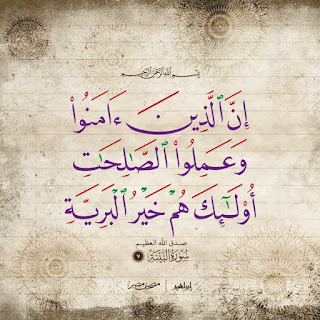 بسم الله الرحمن الرحيم
إِنَّ ٱلَّذِينَ ءَامَنُوا۟
وَعَمِلُوا۟ ٱلصَّـٰلِحَـٰتِ
أُو۟لَـٰٓئِكَ هُمْ خَيْرُ ٱلْبَرِيَّةِ
صدق الله العظيم
سُورَةُ البَيِّنَة ٧
إبراهيم